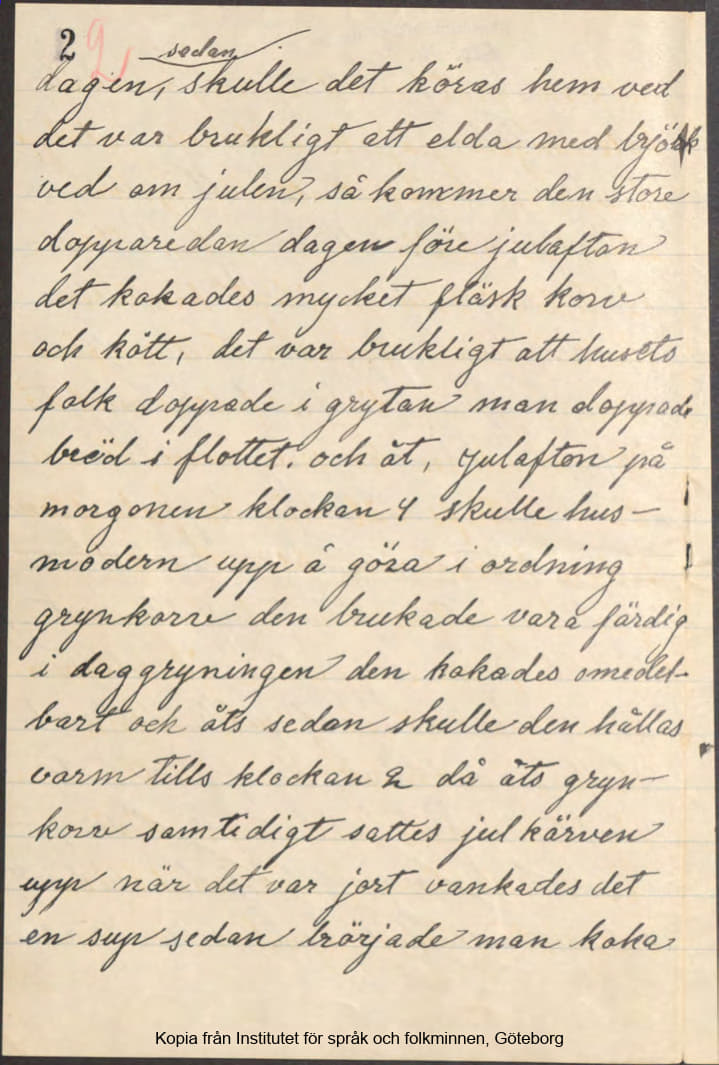 2 2,
sedan
dagen, skulle det köras hem ved
det var brukligt att elda med björk
ved om julen, så kommer den store
dopparedan dagen före julafton
det kokades mycket fläsk korv
och kött, det var brukligt att husets
folk doppade i grytan man doppade
bröd i flottet. och åt, julafton på
morgonen klockan 4 skulle hus-
modern upp å göra i ordning
grynkorv den brukade vara färdig
i daggryningen den kokades omedel-
bart och åts sedan skulle den hållas
varm tills klockan 2 då åts gryn-
korv samtidigt sattes julkärven
upp när det var jort vankades det
en sup sedan började man koka
Kopia från Institutet för språk och folkminnen, Göteborg